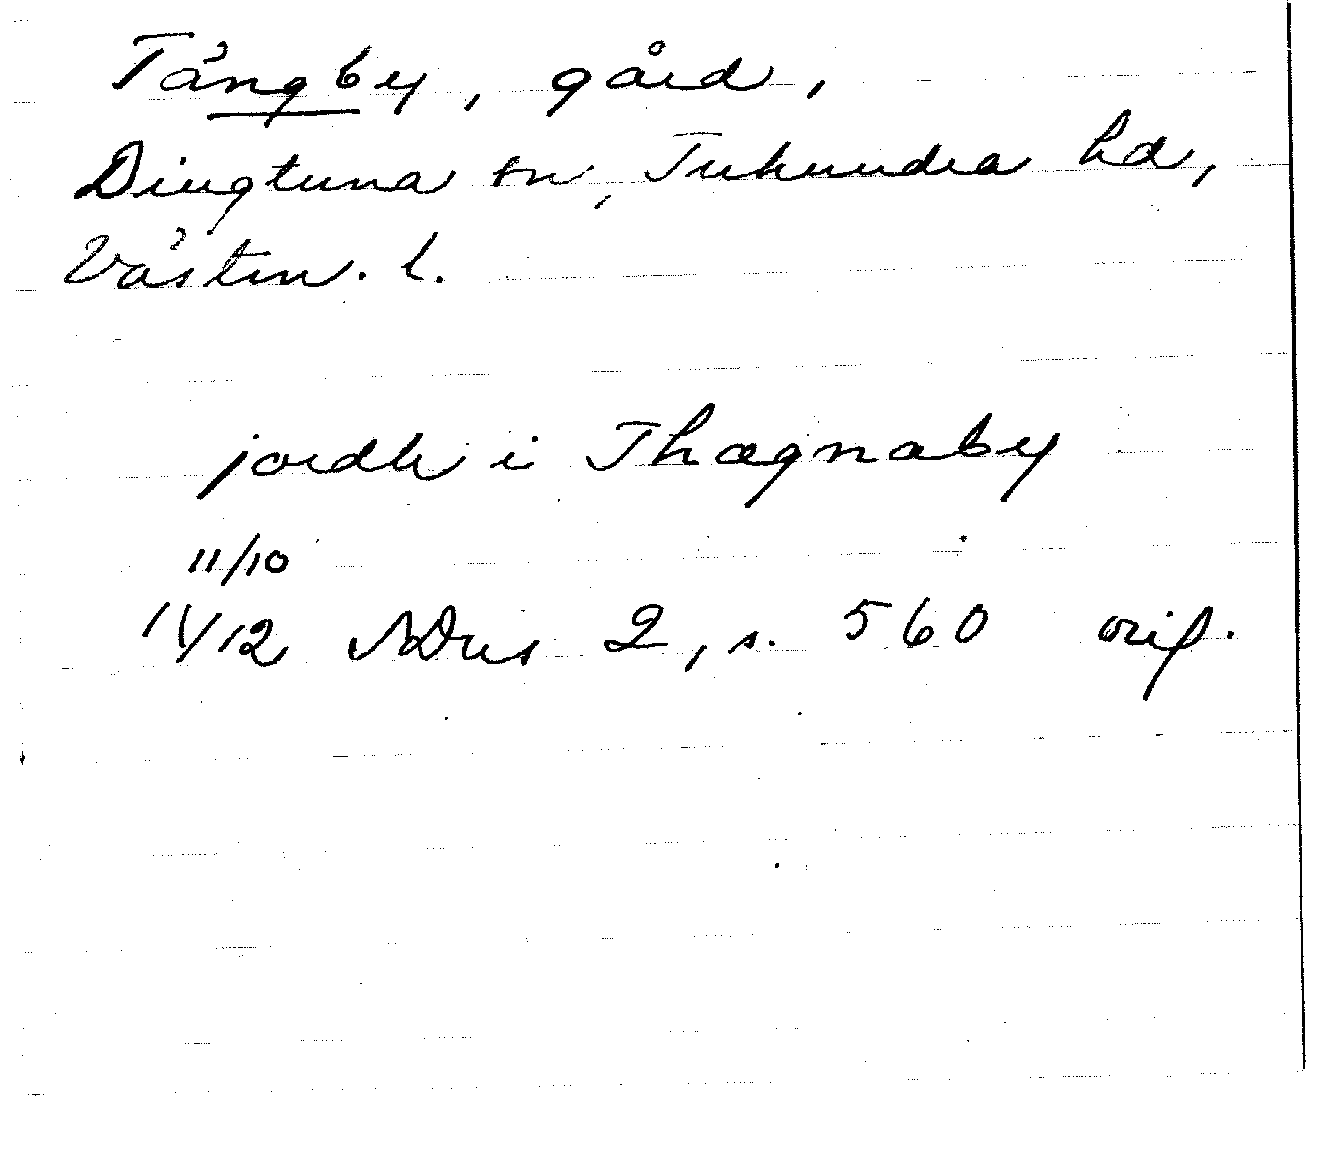 Tängby, gård,
Dingtuna sn, Tuhundra hd,
Västm. l.
jordh i Thægnaby
11/10
1412 SDns 2, s. 560 orig.